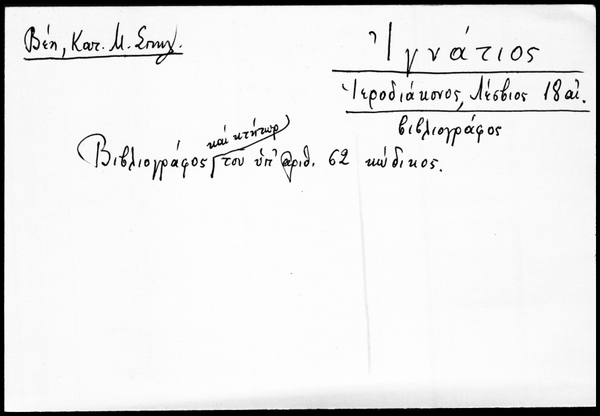 Βέη, Κατ. Μ. Σπηλ.
Ἰγνάτιος
Ἱεροδιάκονος, Λέσβιος 18 αἰ.
βιβλιογράφος
καὶ κτήτωρ
Βιβλιογράφος τοῦ ὑπ' ἀριθ. 62 κώδικος.